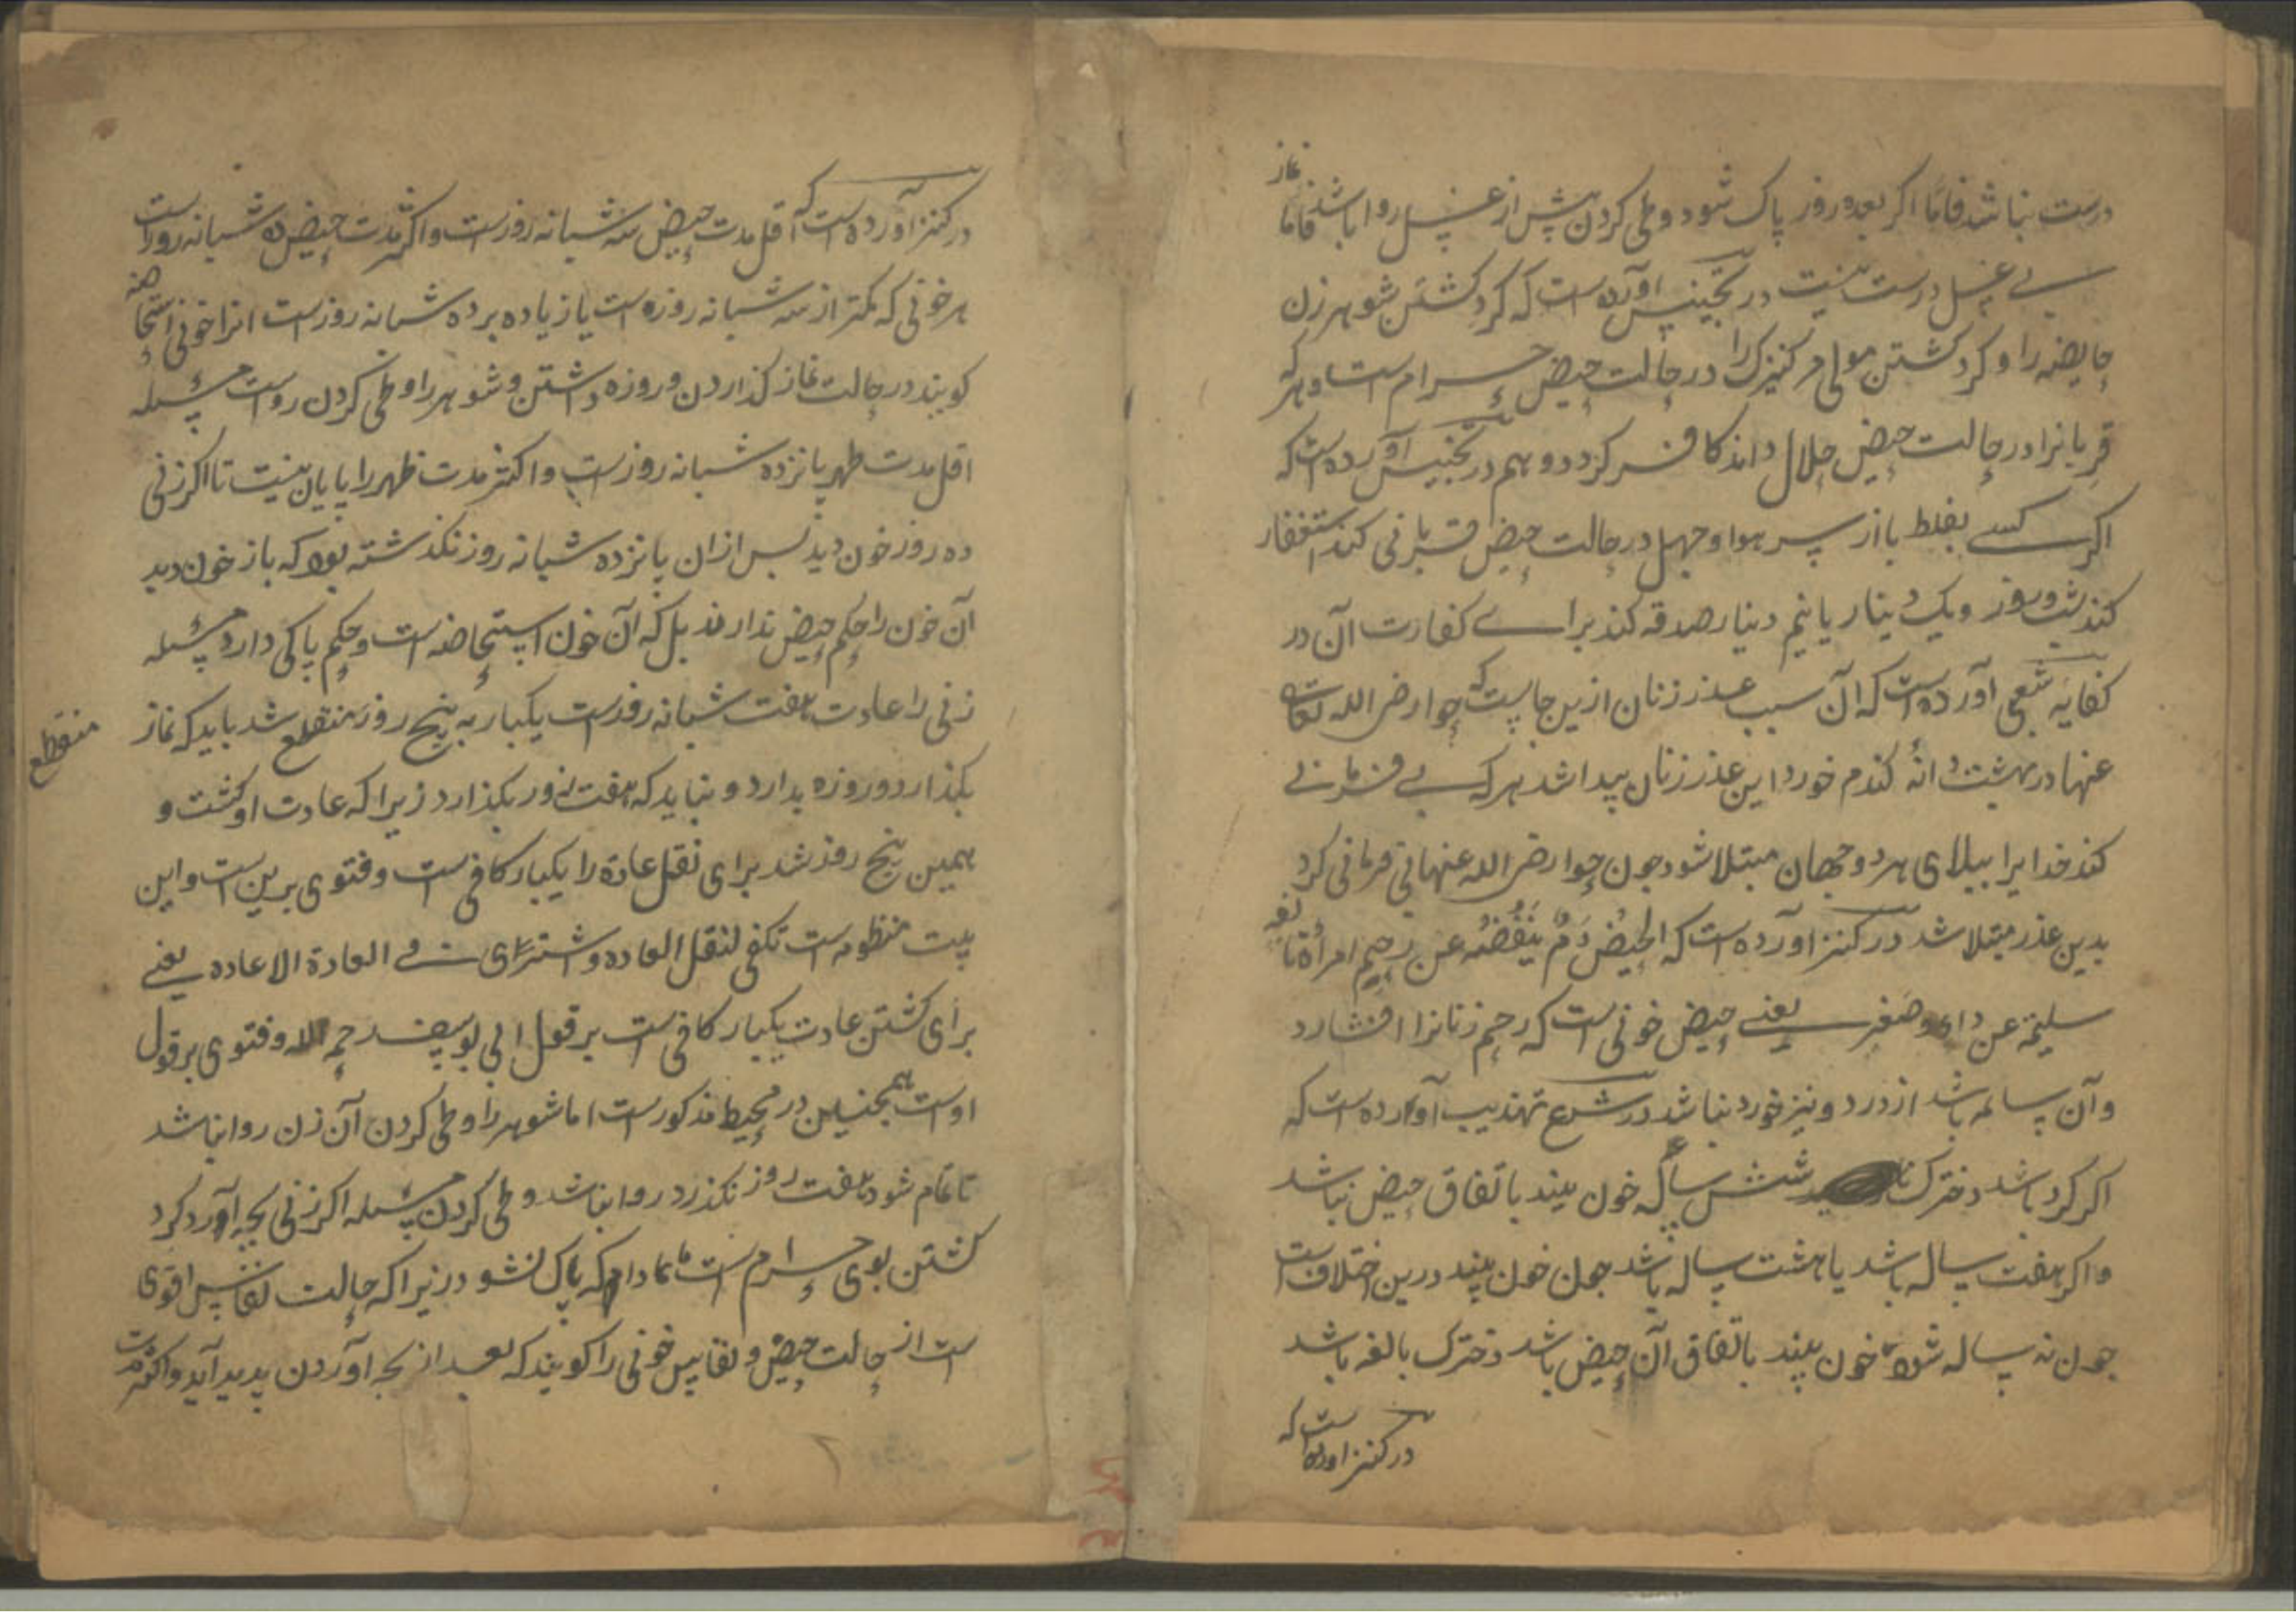 درست نباشد فاما اکر بعد ده روز پاک شود وطی کردن پیش از غسل روا باشد فاما نماز
بے غسل درست نیست در تجنیس آورده است که کرد کشتن شوهر زن
حایضه را و کرد کشتن مولی مر کنیزک را در حالت حیض حرام است و هر که
قربانرا در حالت حیض حلال داند کافر کردد و هم در تجنیس آورده است که
اکر کسے بغلط یا از سر هوا و جهل در حالت حیض قربانی کند استغفار
کند شب و روز و یک دینار یا نیم دینار صدقه کند براے کفارت آن در
کفایه شعبی آورده است که آن سبب عذر زنان ازین جاست که حوا رضی الله تعالی
عنها در بهشت دانهٔ کندم خورد این عذر زنان پیدا شد هر که بے فرمانے
کند خدایرا ببلای هر دو جهان مبتلا شود جون حوا رضی الله عنها نی فرمانی کرد
بدین عذر مبتلا شد در کنز آورده است که الحیض دَمٌ یَنْفُضُه عن رحم امراة بالغه
سلیمة عن داء وصغر یعنے حیض خونی است که رحم زنانرا افشارد
وآن سالمه باشد از درد و نیز خورد نباشد در شرع تهذیب آورده است که
اکر کرد باشد دخترک شش ساله خون بیند باتفاق حیض نباشد
و اکر هفت ساله باشد یا هشت ساله باشد جون خون بیند درین اختلاف است
جون نه ساله شود خون بیند باتفاق آن حیض باشد دخترک بالغه باشد
در کنز آورده است که
در کنز آورده است که اقل مدت حیض سه شبانه روزست و اکثر مدت حیض ده شبانه روزست
هر خونی که کمتر از سه شبانه روزه است یا زیاده بر ده شبانه روزست انرا خونی استحاضه
کویند در حالت نماز کذاردن و روزه داشتن و شوهر را وطی کردن رواست مسئله
اقل مدت طهر پانزده شبانه روزست و اکثر مدت طهر را پایان نیست تا اکر زنی
ده روز خون دید پس ازان پانزده شبانه روز نکذشته بود که باز خون دید
آن خون را حکم حیض ندارند بل که آن خون استحاضه است و حکم پاکی دارد مسئله
زنی را عادت هفت شبانه روزست یکبار به پنج روز منقطع شد باید که نماز
منقطع
بکذارد و روزه بدارد و نباید که هفت روز بکذارد زیرا که عادت او کشت و
همین پنج روز شد برای نقل عادة را یکبار کافی است و فتوی برین است و این
بیت منظومه است تکفی لنقل العاده و اشترای فے العادة الاعاده یعنے
برای کشتن عادت یکبار کافی است بر قول ابی یوسف رحمه الله و فتوی بر قول
اوست همجنین در محیط مذکورست اما شوهر را وطی کردن آن زن روا نباشد
تا تمام شود هفت روز نکذرد روا نباشد وطی کردن مسئله اکر زنی بجه آورد کرد
کشتن بوی حرام است مادام که پاک نشود زیرا که حالت نفاس اقوی
ست از حالت حیض و نفاس خونی را کویند که بعد از بجه آوردن پدید آید و اکثر مدت